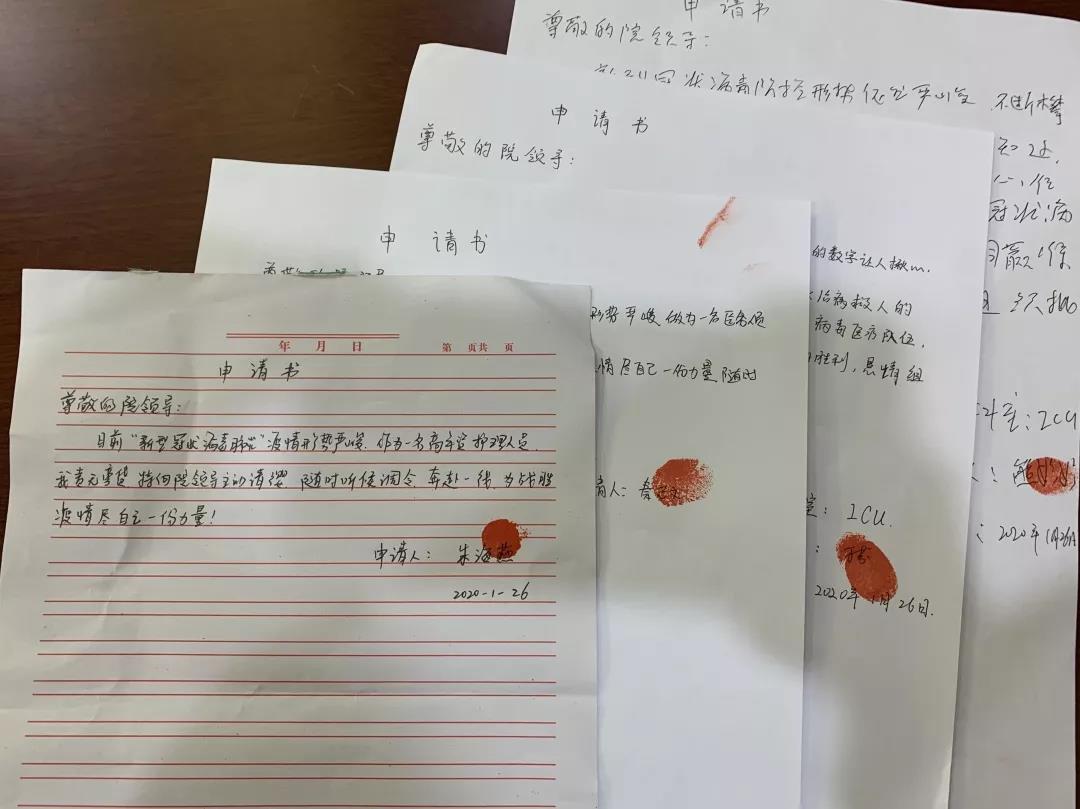 年 月 日
第 页共 页
申请书
尊敬的院领导:
目前"新型冠状病毒肺炎"疫情形势严峻.作为一名高年资护理人员,
我责无旁贷 特向院领导主动请缨 随时听候调令 奔赴一线 为战胜
疫情尽自己一份力量!
申请人: 朱海燕
2020-1-26
申请书
形势严峻 做为一名医务人员
情尽自己一份力量 随时
请人:
申请书
尊敬的院领导:
的数字让人揪心.
治病救人的
病毒医疗队伍,
胜利, 恳请组
室: ICU.
2020年1月26日.
申请书
尊敬的院领导:
冠状病毒防控形势依然严峻 不断攀
冠状病
科室: ICU
2020年1月26日